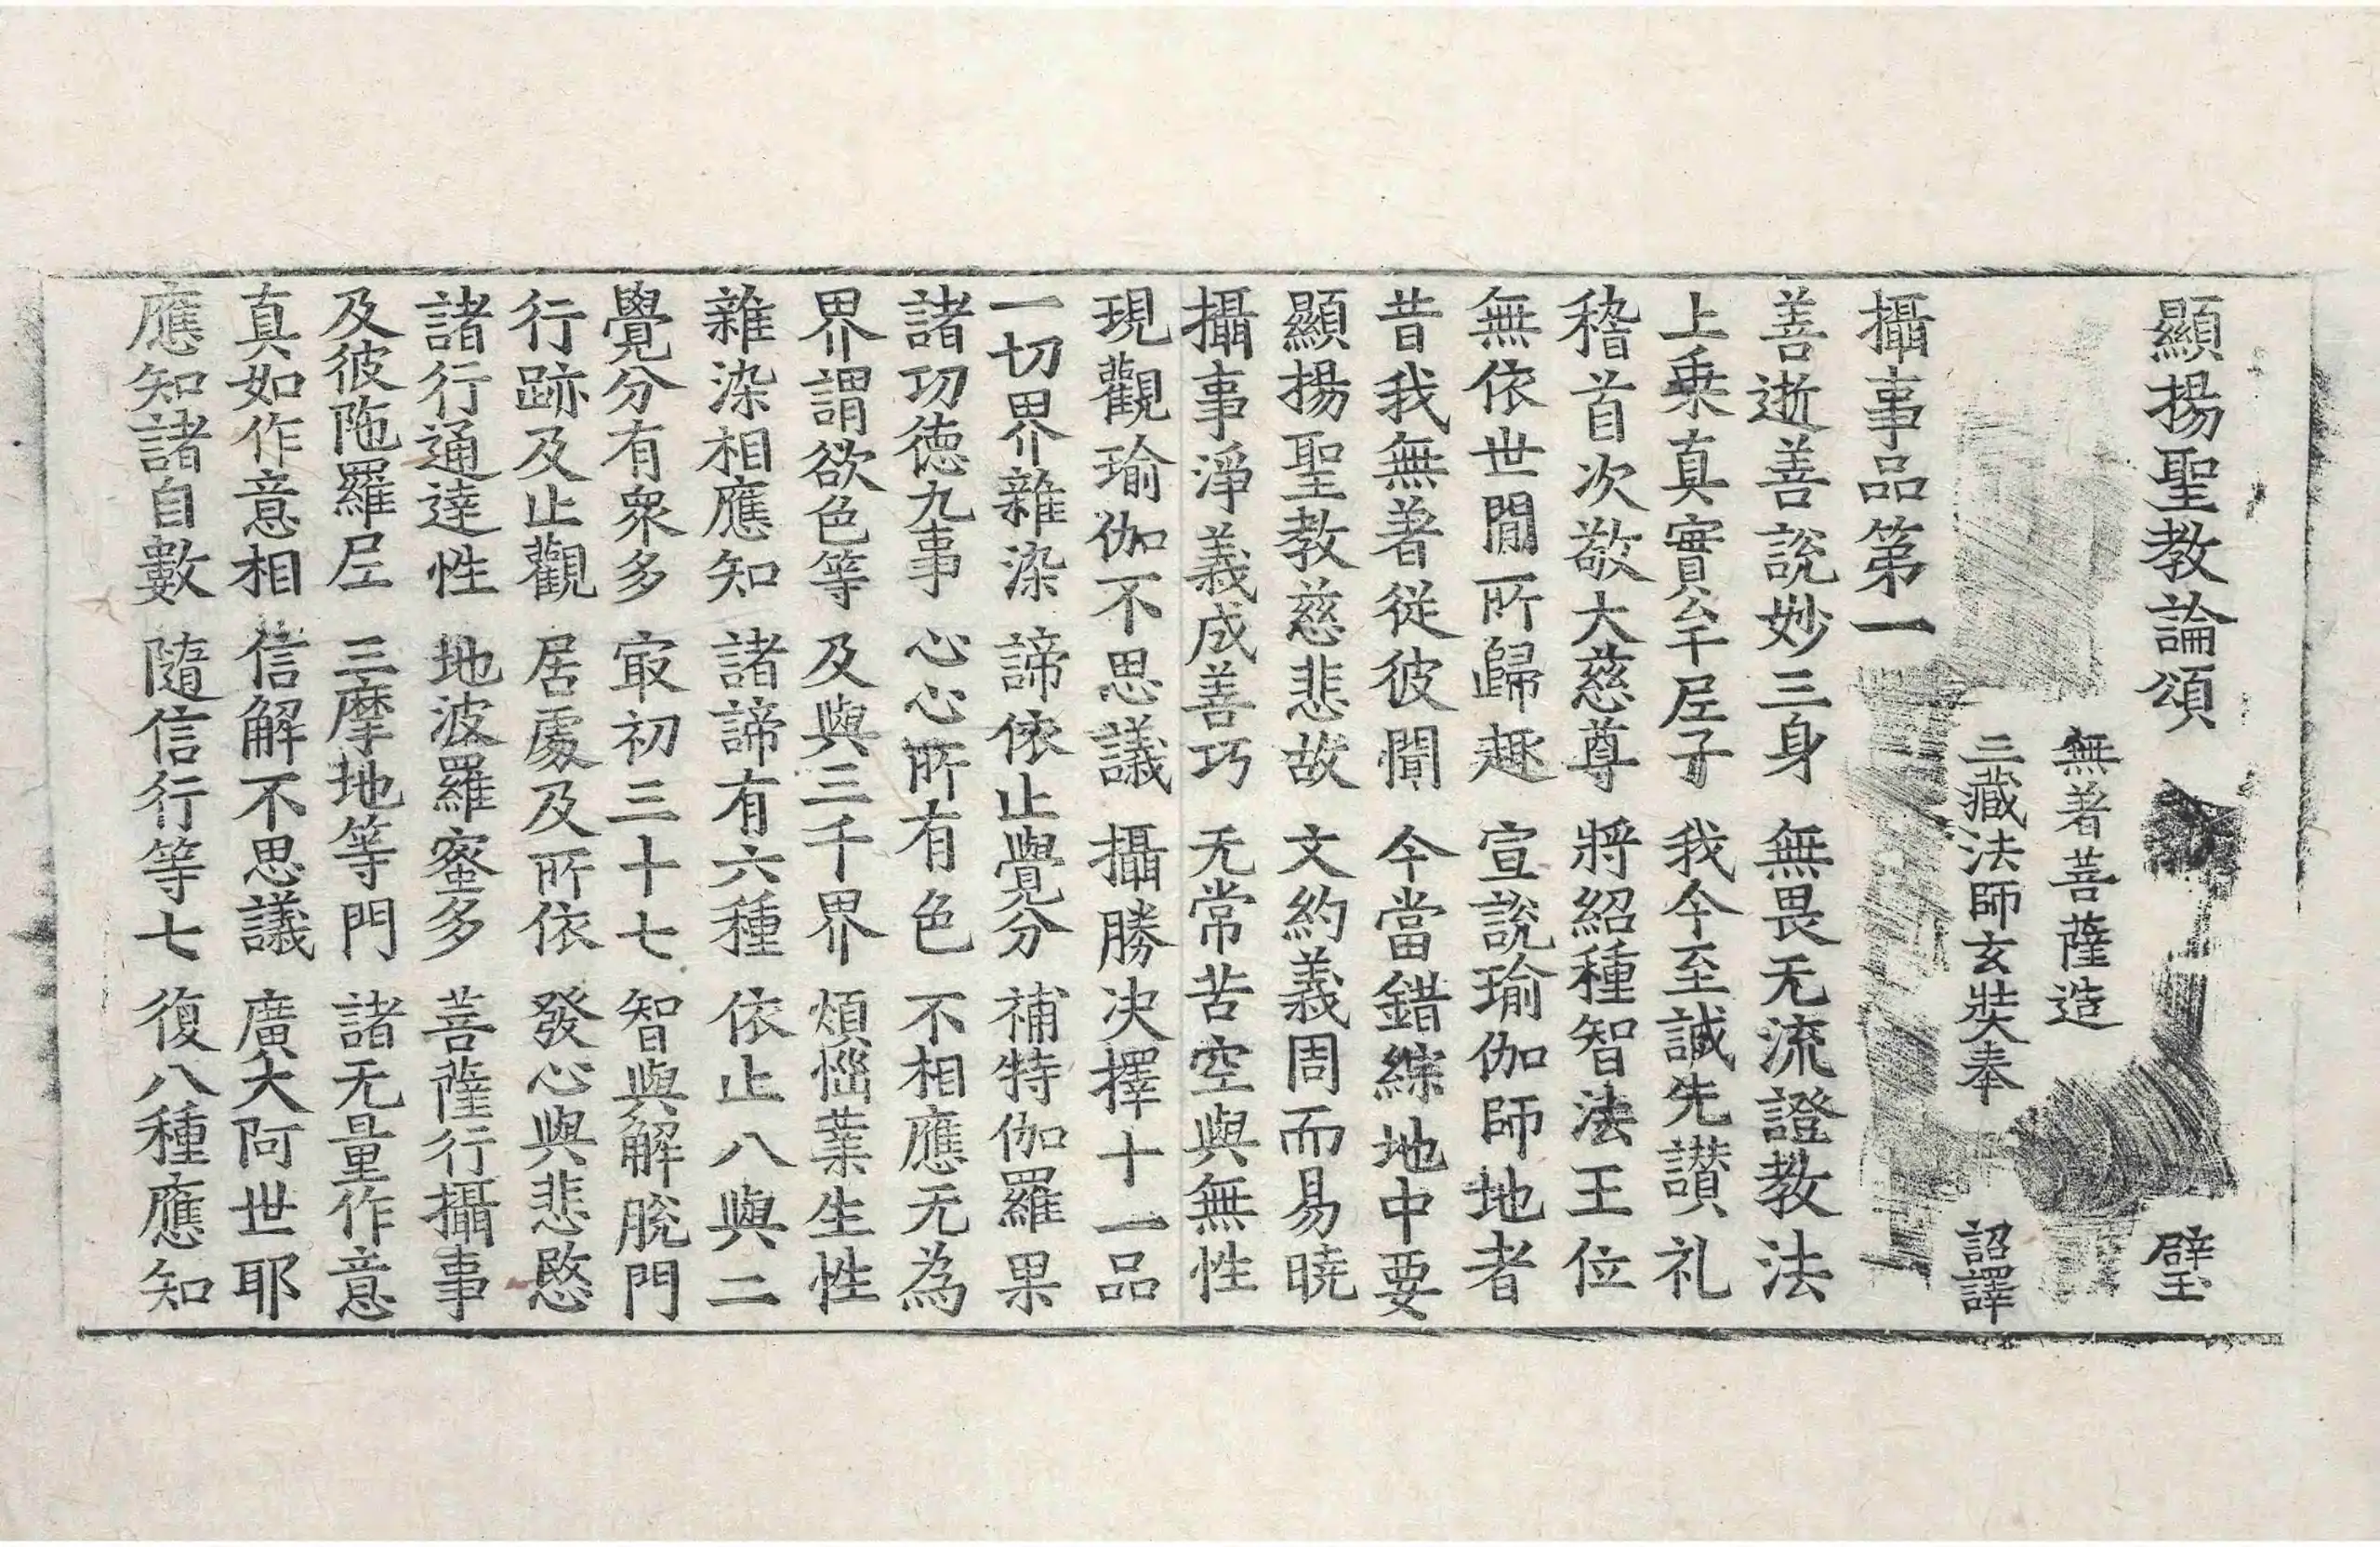 顯揚聖教論頌 璧
無著菩薩造
三藏法師玄奘奉 詔譯
攝事品第一
善逝善說妙三身 無畏无流證教法
上乗真實牟尼子 我今至誠先讃礼
稽首次敬大慈尊 將紹種智法王位
無依世間所歸趣 宣說瑜伽師地者
昔我無著從彼聞 今當錯綜地中要
顯揚聖教慈悲故 文約義周而易曉
攝事淨義成善巧 无常苦空與無性
現觀瑜伽不思議 攝勝决擇十一品
一切界雜染 諦依止覺分 補特伽羅果
諸功徳九事 心心所有色 不相應无為
界謂欲色等 及與三千界 煩惱業生性
雜染相應知 諸諦有六種 依止八與二
覺分有衆多 㝡初三十七 智與解脫門
行跡及止觀 居處及所依 發心與悲愍
諸行通達性 地波羅蜜多 菩薩行攝事
及彼陁羅尼 三摩地等門 諸无量作意
真如作意相 信解不思議 廣大阿世耶
應知諸自數 隨信行等七 復八種應知